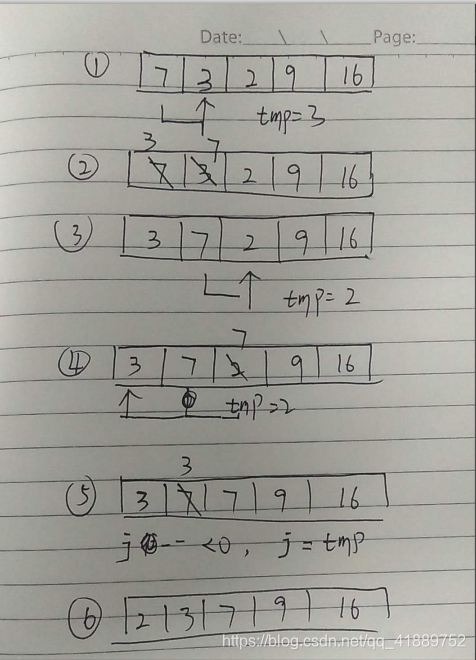 Date: \ \ Page:
① 7 3 2 9 16
tmp=3
3 7
② 7 3 2 9 16
③ 3 7 2 9 16
tmp=2
7
④ 3 7 2 9 16
tmp=2
3
⑤ 3 7 7 9 16
j -- <0, j = tmp
⑥ 2 3 7 9 16
https://blog.csdn.net/qq_41889752